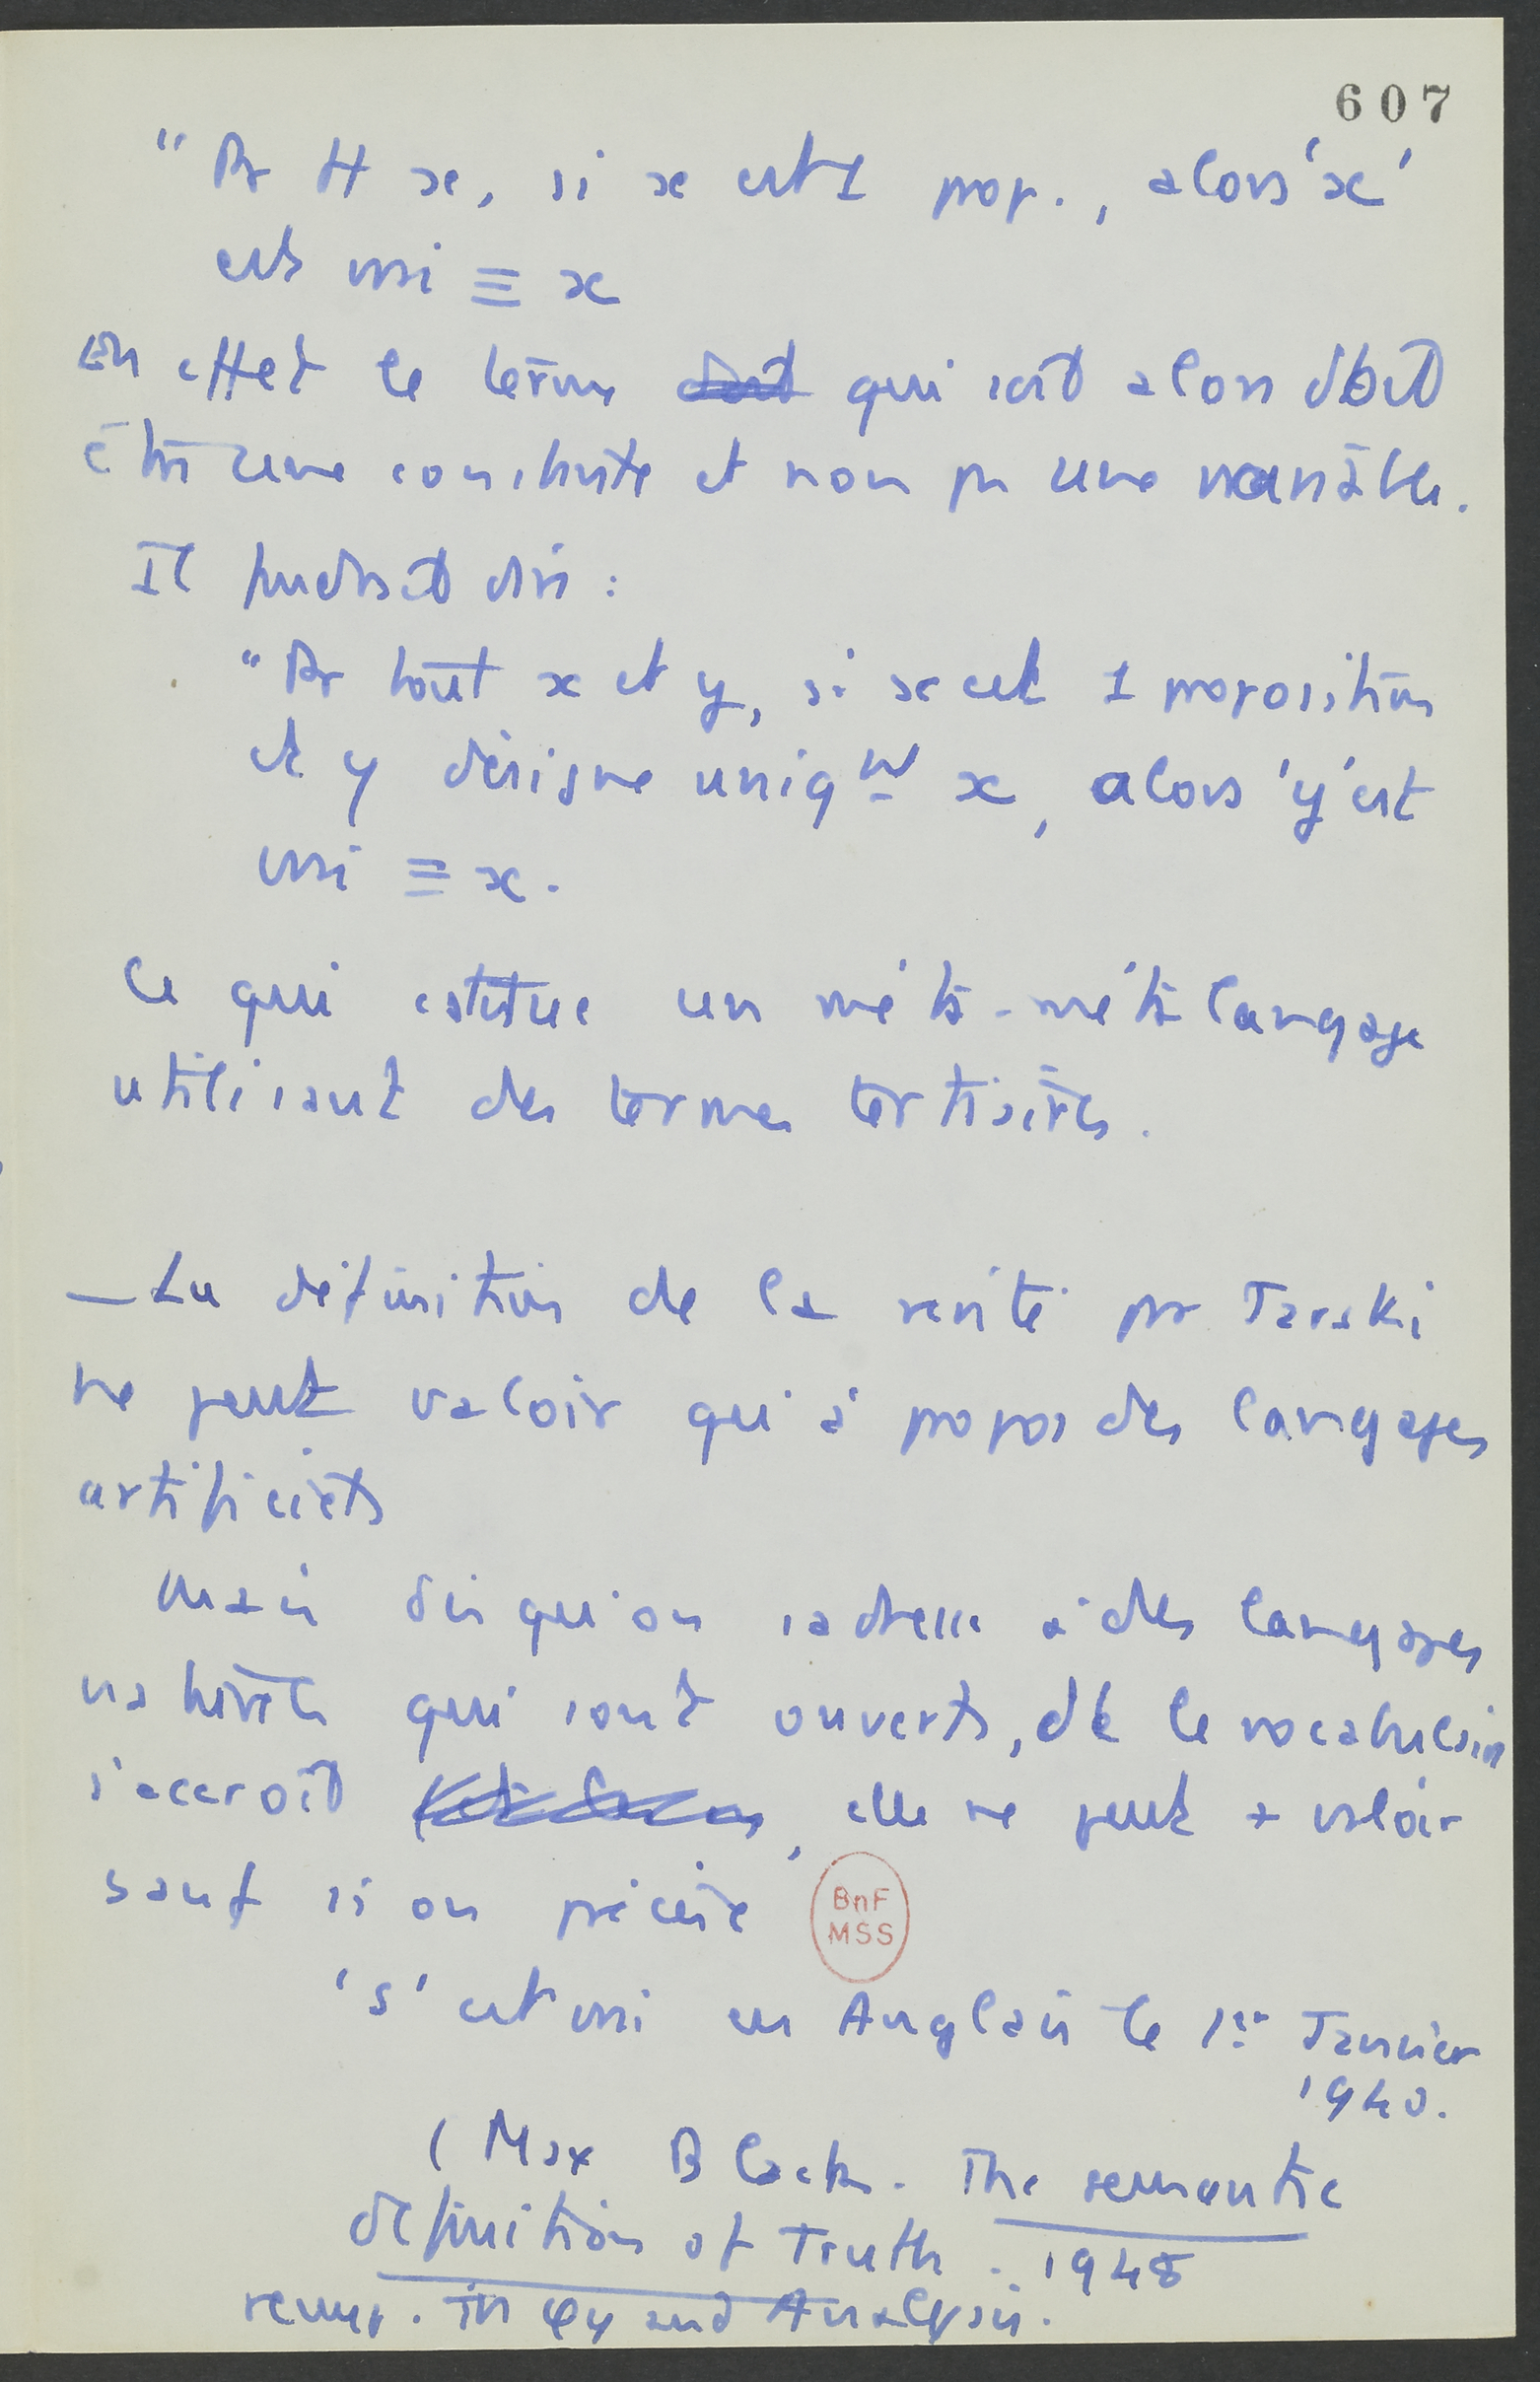 607
"Pr tt x, si x est 1 prop., alors 'x'
est vrai ≡ x
En effet le terme qui suit alors doit
être une constante et non pas une variable.
Il faudrait dire :
"Pr tout x et y, si x est 1 proposition
et y désigne uniqnt x, alors 'y' est
vrai ≡ x.
Ce qui constitue un méta-méta langage
utilisant des termes tertiaires.
— La définition de la vérité par Tarski
ne peut valoir qu'à propos des langages
artificiels
Mais dès qu'on s'adresse à des langages
naturels qui sont ouverts, dt le vocabulaire
s'accroît , elle ne peut + valoir
sauf si on précise
BnF
MSS
's' est vrai en Anglais le 1er Janvier
1940.
(Max Black. The semantic
definition of Truth. 1948
reimp. in φy and Analysis.